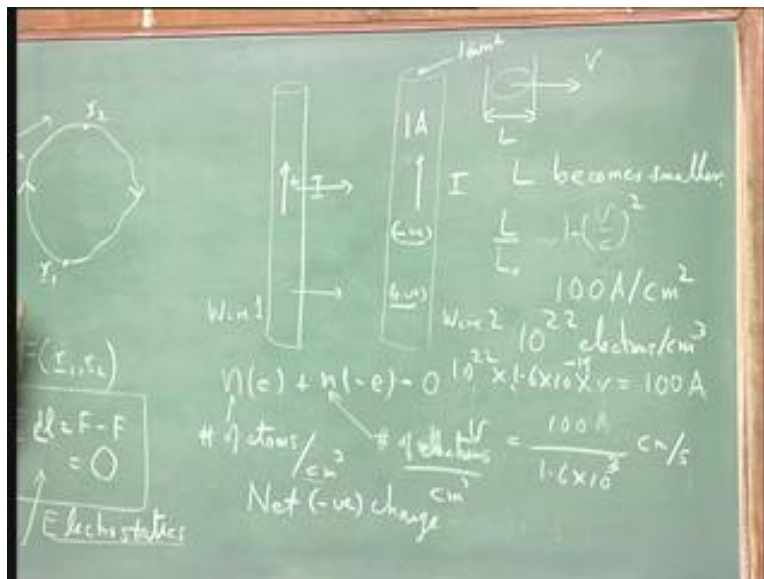 r₂
r₁
F(r₁, r₂)
dl = F - F
= 0
Electrostatics
I
Wire 1
1mm²
1A
I
(-ve)
(+ve)
Wire 2
V
L
L becomes smaller
L/L₀ 1-(v/c)²
100A/cm²
10²² electrons/cm³
n(e) + n(-e) = 0
10²² × 1.6×10⁻¹⁹ × v = 100A
# of atoms/cm³
# of electrons/cm³
V = 100A / 1.6×10³ cm/s
Net (-ve) charge